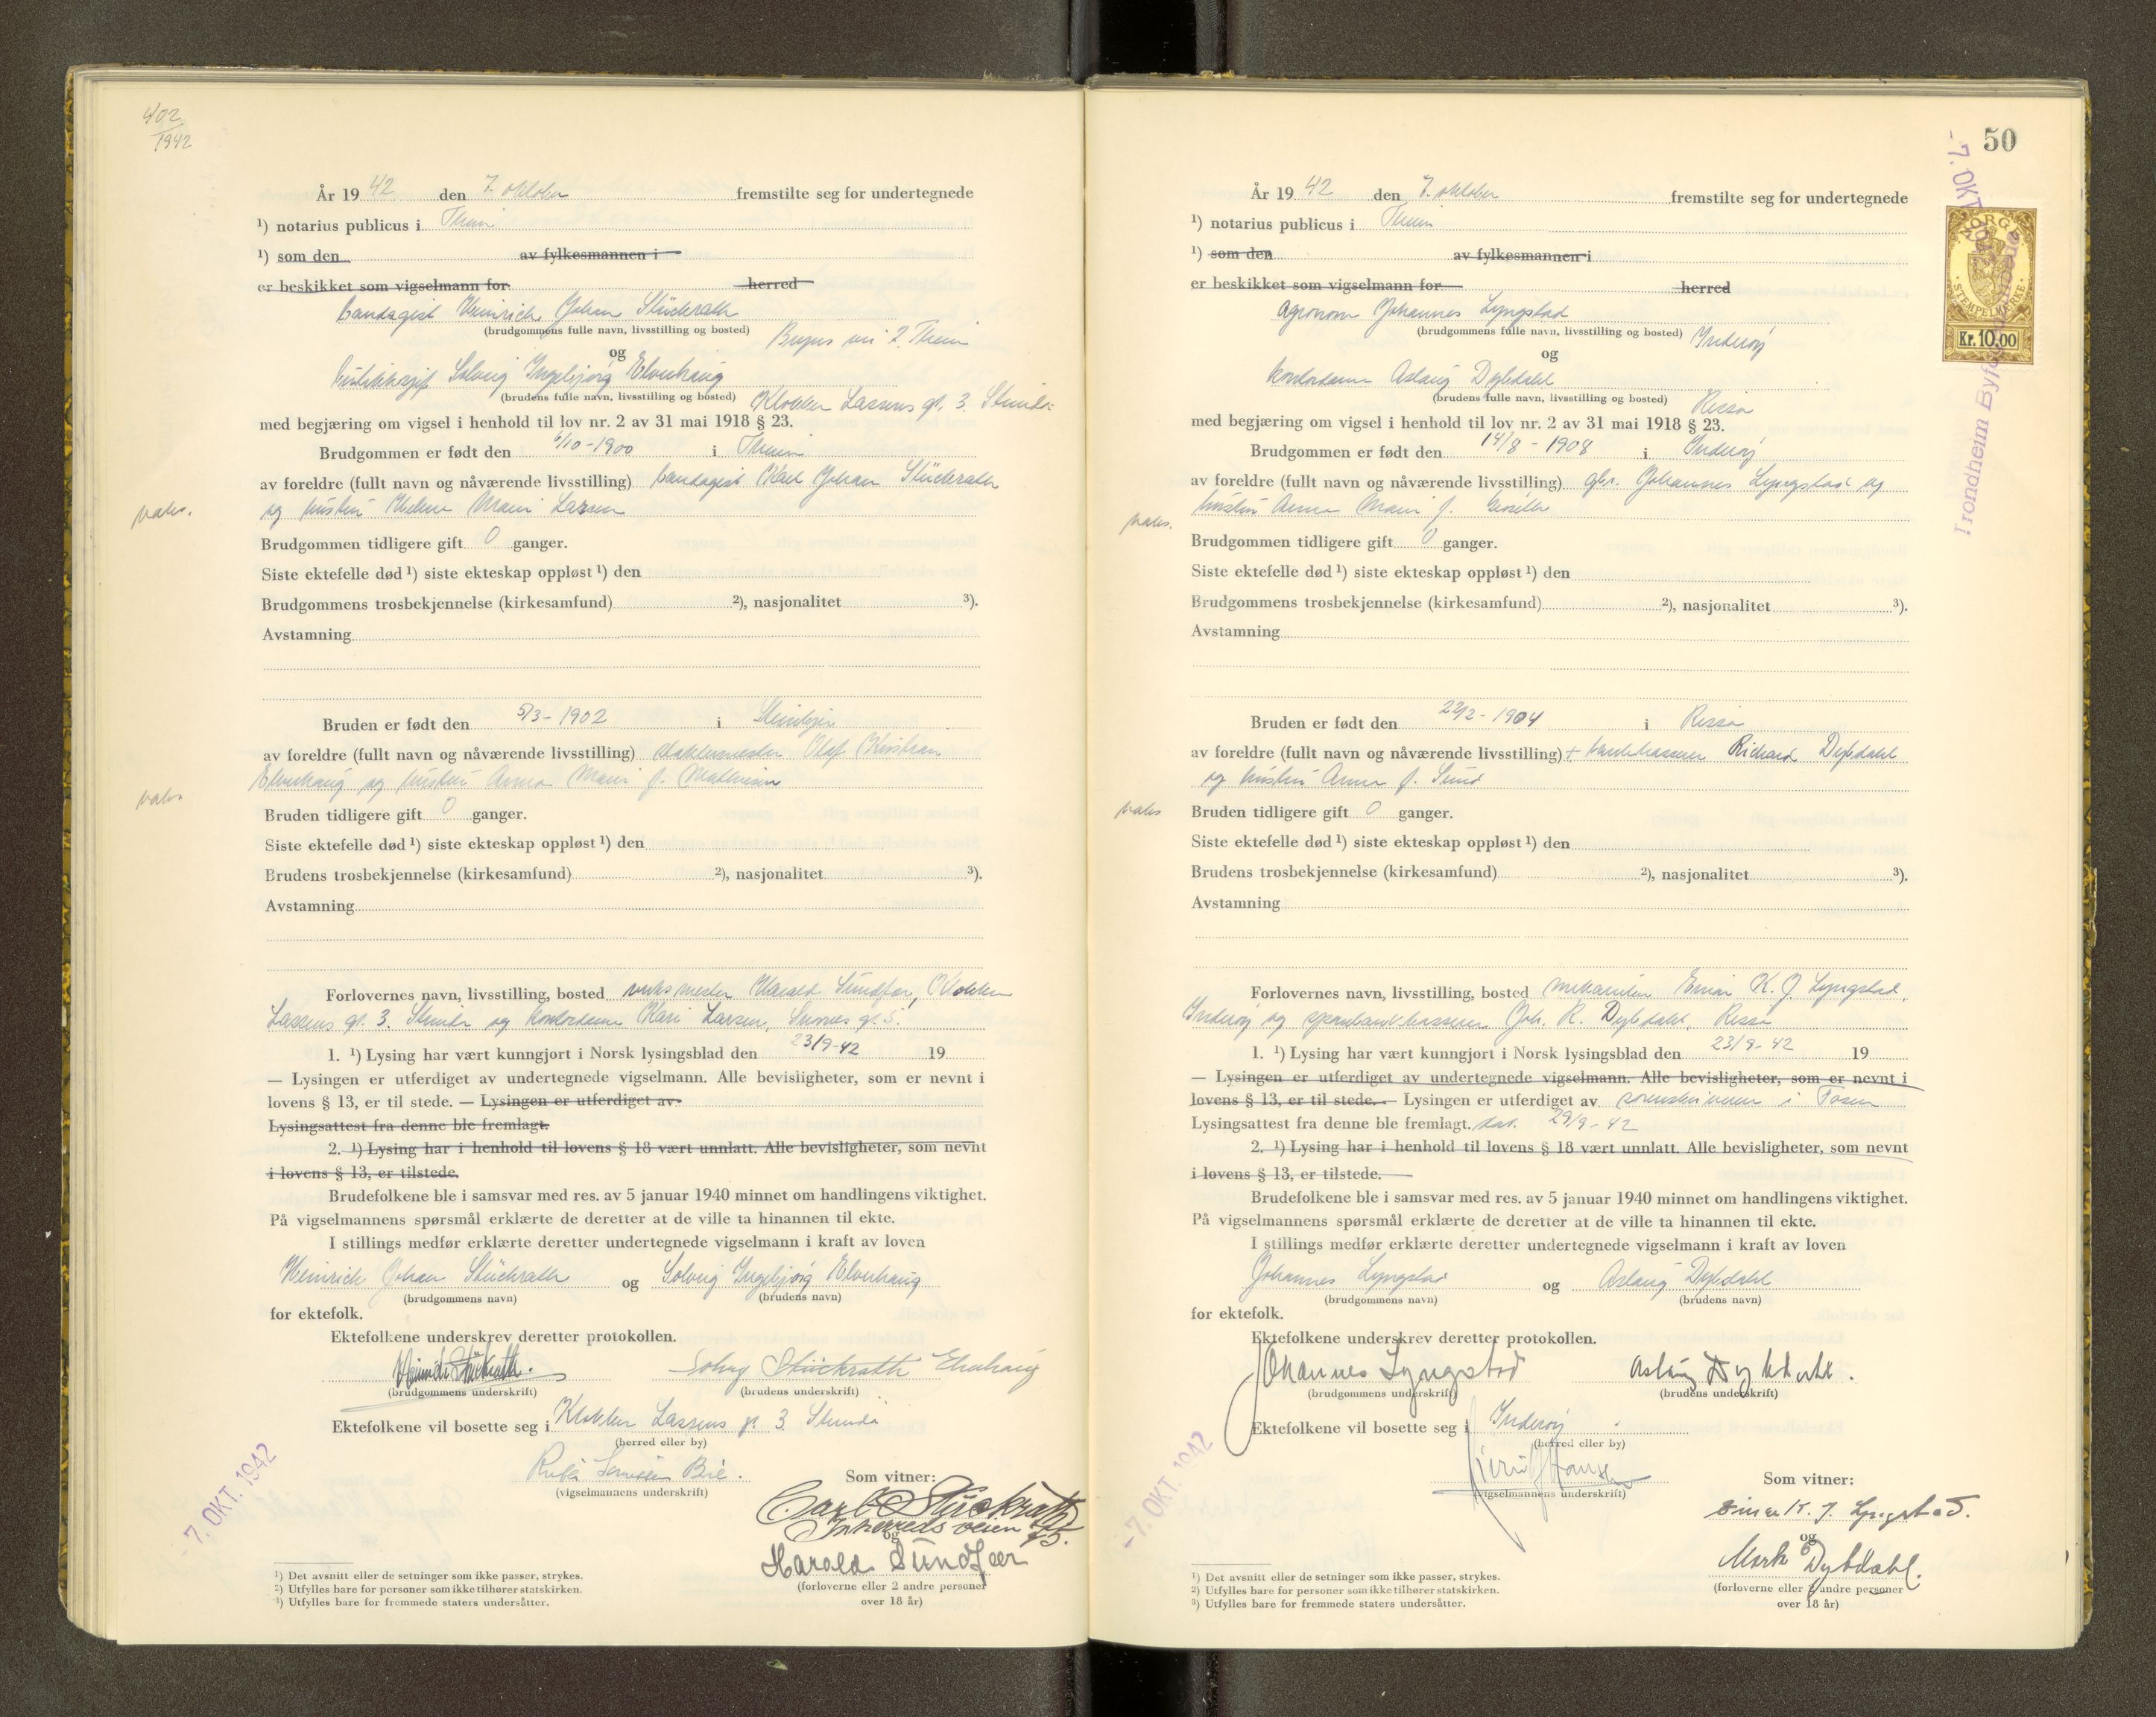 402
1942
År 19 42 den 7. oktober fremstilte seg for undertegnede
¹) notarius publicus i Thrim
¹) som den av fylkesmannen i
er beskikket som vigselmann for herred
bandagist Heinrich Johan Stückrath
(brudgommens fulle navn, livsstilling og bosted)
2. Thrim
og
Solveig Ingebjørg Elvehaug
(brudens fulle navn, livsstilling og bosted) Klokker Lassens gt. 3. Strinda
med begjæring om vigsel i henhold til lov nr. 2 av 31 mai 1918 § 23.
Brudgommen er født den 6/10-1900 i Thrim
av foreldre (fullt navn og nåværende livsstilling) bandagist Karl Johan Stückrath
og hustru Marie Larsen
vaks.
Brudgommen tidligere gift 0 ganger.
Siste ektefelle død ¹) siste ekteskap oppløst ¹) den
Brudgommens trosbekjennelse (kirkesamfund) ²), nasjonalitet ³).
Avstamning
Bruden er født den 5/3-1902 i Steinkjer
av foreldre (fullt navn og nåværende livsstilling) Olaf Kristian
Elvehaug og hustru Anna Marie f. Mathisen
vaks
Bruden tidligere gift 0 ganger.
Siste ektefelle død ¹) siste ekteskap oppløst ¹) den
Brudens trosbekjennelse (kirkesamfund) ²), nasjonalitet ³).
Avstamning
Forlovernes navn, livsstilling, bosted verksmester Harald Sundfær, Klokker
Lassens gt. 3. Strinda og kontordame Kari Larsen, gt. 5.
1. ¹) Lysing har vært kunngjort i Norsk lysingsblad den 23/9-42 19
— Lysingen er utferdiget av undertegnede vigselmann. Alle bevisligheter, som er nevnt i
lovens § 13, er til stede. — Lysingen er utferdiget av
Lysingsattest fra denne ble fremlagt.
2. ¹) Lysing har i henhold til lovens § 18 vært unnlatt. Alle bevisligheter, som nevnt
i lovens § 13, er tilstede.
Brudefolkene ble i samsvar med res. av 5 januar 1940 minnet om handlingens viktighet.
På vigselmannens spørsmål erklærte de deretter at de ville ta hinannen til ekte.
I stillings medfør erklærte deretter undertegnede vigselmann i kraft av loven
Heinrich Johan Stückrath og Solveig Ingebjørg Elvehaug
(brudgommens navn) (brudens navn)
for ektefolk.
Ektefolkene underskrev deretter protokollen.
Heinrich Stückrath. Solveig Stückrath Elvehaug
(brudgommens underskrift) (brudens underskrift)
Ektefolkene vil bosette seg i Klokker Lassens gt. 3 Strinda
(herred eller by)
(vigselmannens underskrift)
Som vitner:
Carl Stückrath
Innherredsveien 75.
og
Harald Sundfær
(forloverne eller 2 andre personer
over 18 år)
-7. OKT. 1942
¹) Det avsnitt eller de setninger som ikke passer, strykes.
²) Utfylles bare for personer som ikke tilhører statskirken.
³) Utfylles bare for fremmede staters undersåtter.
50
-7. OKT
NORGE
STEMPELMERKE
Kr. 10.00
Trondheim Byfogdembede
År 19 42 den 7. oktober fremstilte seg for undertegnede
¹) notarius publicus i Thrim
¹) som den av fylkesmannen i
er beskikket som vigselmann for herred
Agronom Johannes Lyngstad
(brudgommens fulle navn, livsstilling og bosted) Inderøy
og
kontordame Aslaug Dybdahl
(brudens fulle navn, livsstilling og bosted) Rissa
med begjæring om vigsel i henhold til lov nr. 2 av 31 mai 1918 § 23.
Brudgommen er født den 14/8-1908 i Inderøy
av foreldre (fullt navn og nåværende livsstilling) gbr. Johannes Lyngstad og
hustru Anna Marie f.
vaks.
Brudgommen tidligere gift 0 ganger.
Siste ektefelle død ¹) siste ekteskap oppløst ¹) den
Brudgommens trosbekjennelse (kirkesamfund) ²), nasjonalitet ³).
Avstamning
Bruden er født den 22/2-1904 i Rissa
av foreldre (fullt navn og nåværende livsstilling) + bankkasserer Richard Dybdahl
og hustru Anna f. Sund
vaks
Bruden tidligere gift 0 ganger.
Siste ektefelle død ¹) siste ekteskap oppløst ¹) den
Brudens trosbekjennelse (kirkesamfund) ²), nasjonalitet ³).
Avstamning
Forlovernes navn, livsstilling, bosted mekaniker Einar K. J. Lyngstad,
Inderøy og sparebankkasserer Joh. R. Dybdahl, Rissa
1. ¹) Lysing har vært kunngjort i Norsk lysingsblad den 23/9-42 19
— Lysingen er utferdiget av undertegnede vigselmann. Alle bevisligheter, som er nevnt i
lovens § 13, er til stede. — Lysingen er utferdiget av sorenskriveren i Fosen
Lysingsattest fra denne ble fremlagt. dat. 29/9-42
2. ¹) Lysing har i henhold til lovens § 18 vært unnlatt. Alle bevisligheter, som nevnt
i lovens § 13, er tilstede.
Brudefolkene ble i samsvar med res. av 5 januar 1940 minnet om handlingens viktighet.
På vigselmannens spørsmål erklærte de deretter at de ville ta hinannen til ekte.
I stillings medfør erklærte deretter undertegnede vigselmann i kraft av loven
Johannes Lyngstad og Aslaug Dybdahl
(brudgommens navn) (brudens navn)
for ektefolk.
Ektefolkene underskrev deretter protokollen.
Johannes Lyngstad Aslaug Dybdahl.
(brudgommens underskrift) (brudens underskrift)
Ektefolkene vil bosette seg i Inderøy
(herred eller by)
(vigselmannens underskrift)
Som vitner:
Einar K. J. Lyngstad.
og
Mark Dybdahl.
(forloverne eller 2 andre personer
over 18 år)
-7. OKT. 1942
¹) Det avsnitt eller de setninger som ikke passer, strykes.
²) Utfylles bare for personer som ikke tilhører statskirken.
³) Utfylles bare for fremmede staters undersåtter.